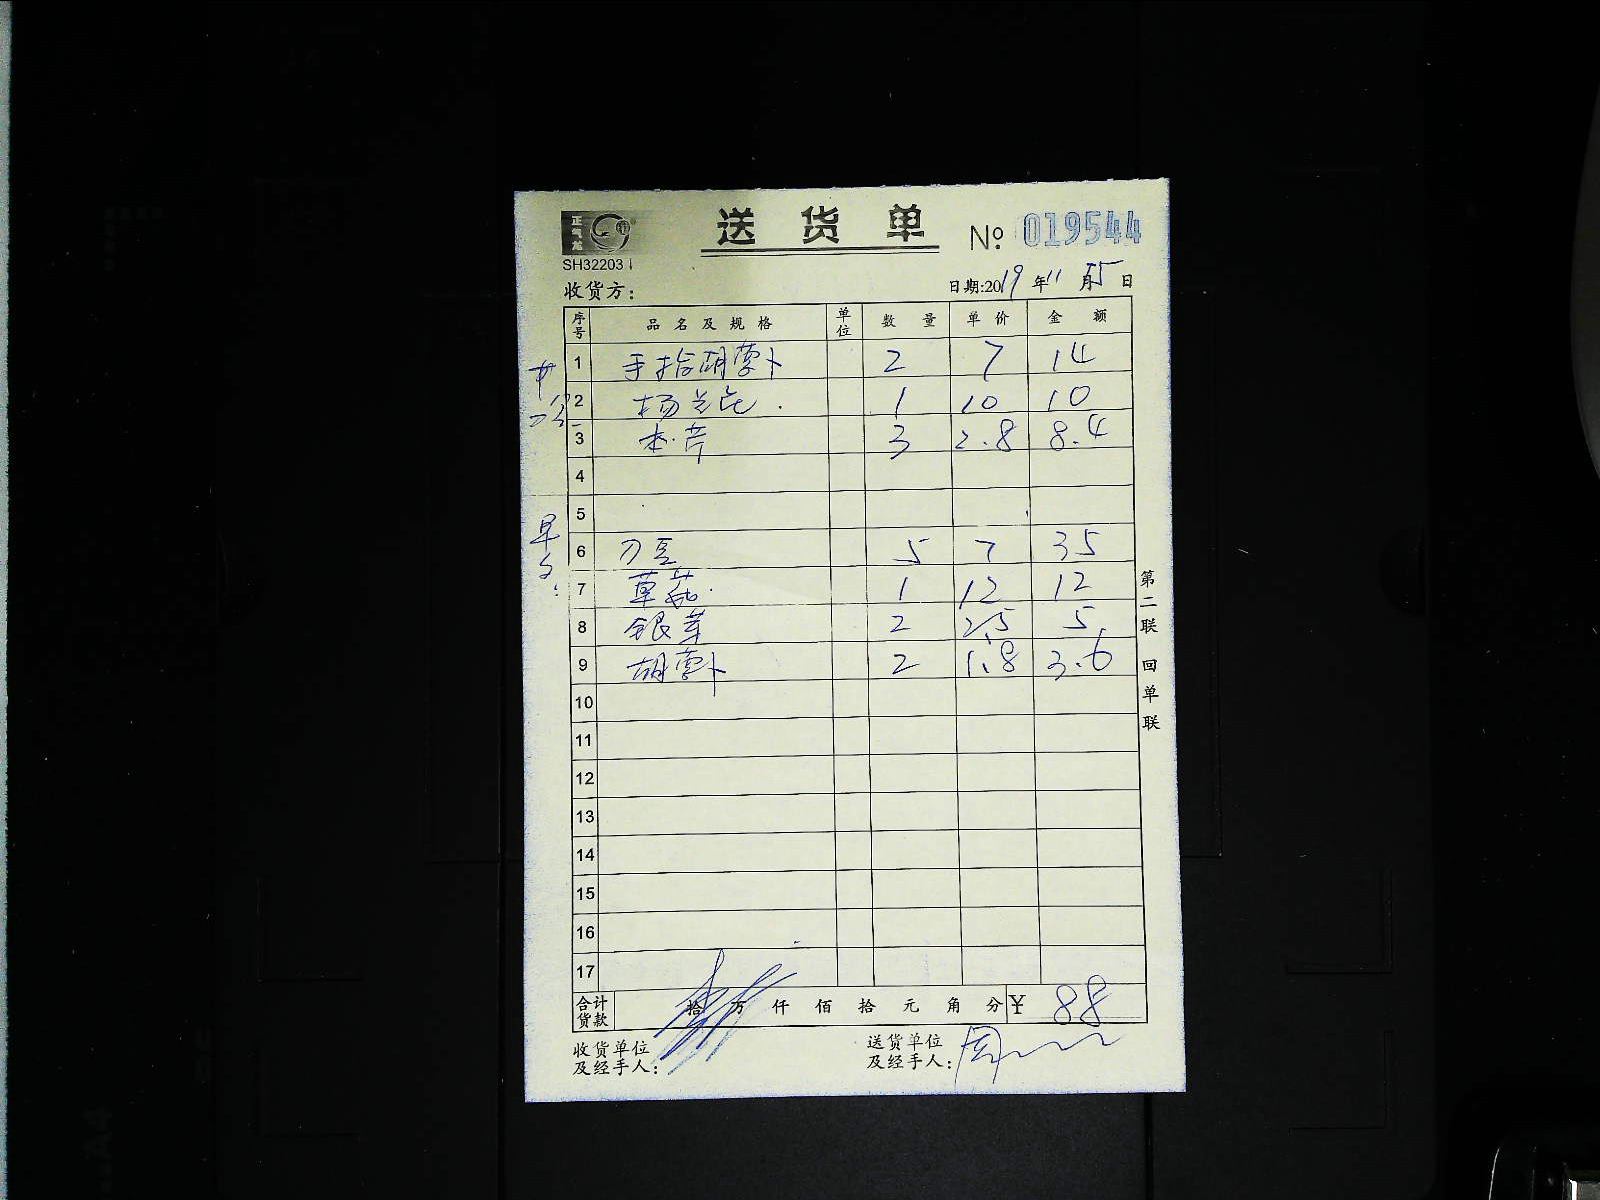 正冠龙
送货单 № 019544
SH32203
收货方: 日期:2019年11月15日
序号 品名及规格 单位 数量 单价 金额
1 手拾胡萝卜 2 7 14
2 杨兰花 1 10 10
3 本芹 3 2.8 8.4
4
5
早
6 刀豆 5 7 35
7 草菇 1 12 12
8 银芽 2 2.5 5
9 胡萝卜 2 1.8 3.6
10
11
12
13
14
15
16
17
合计货款 拾万仟佰拾元角分 ¥ 88
收货单位及经手人: 送货单位及经手人: 周
第二联 回单联